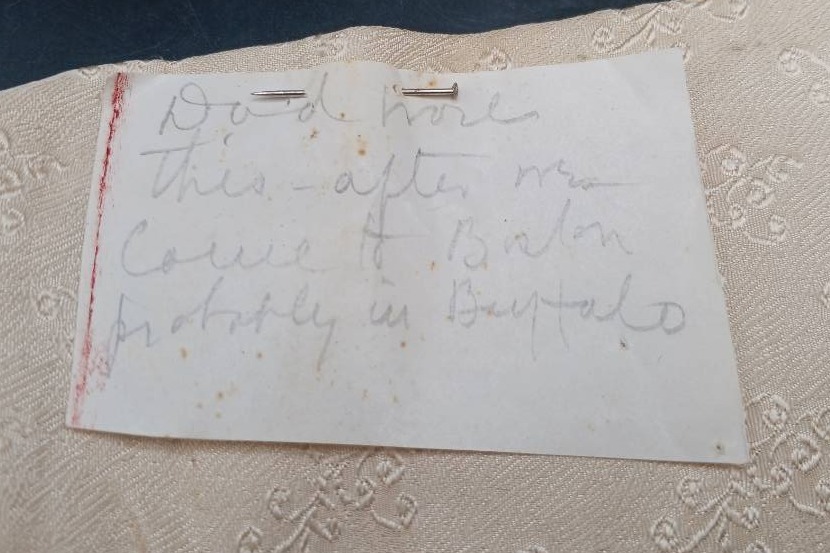 Dad wore
this - after we
Came to Boston
probably in Buffalo